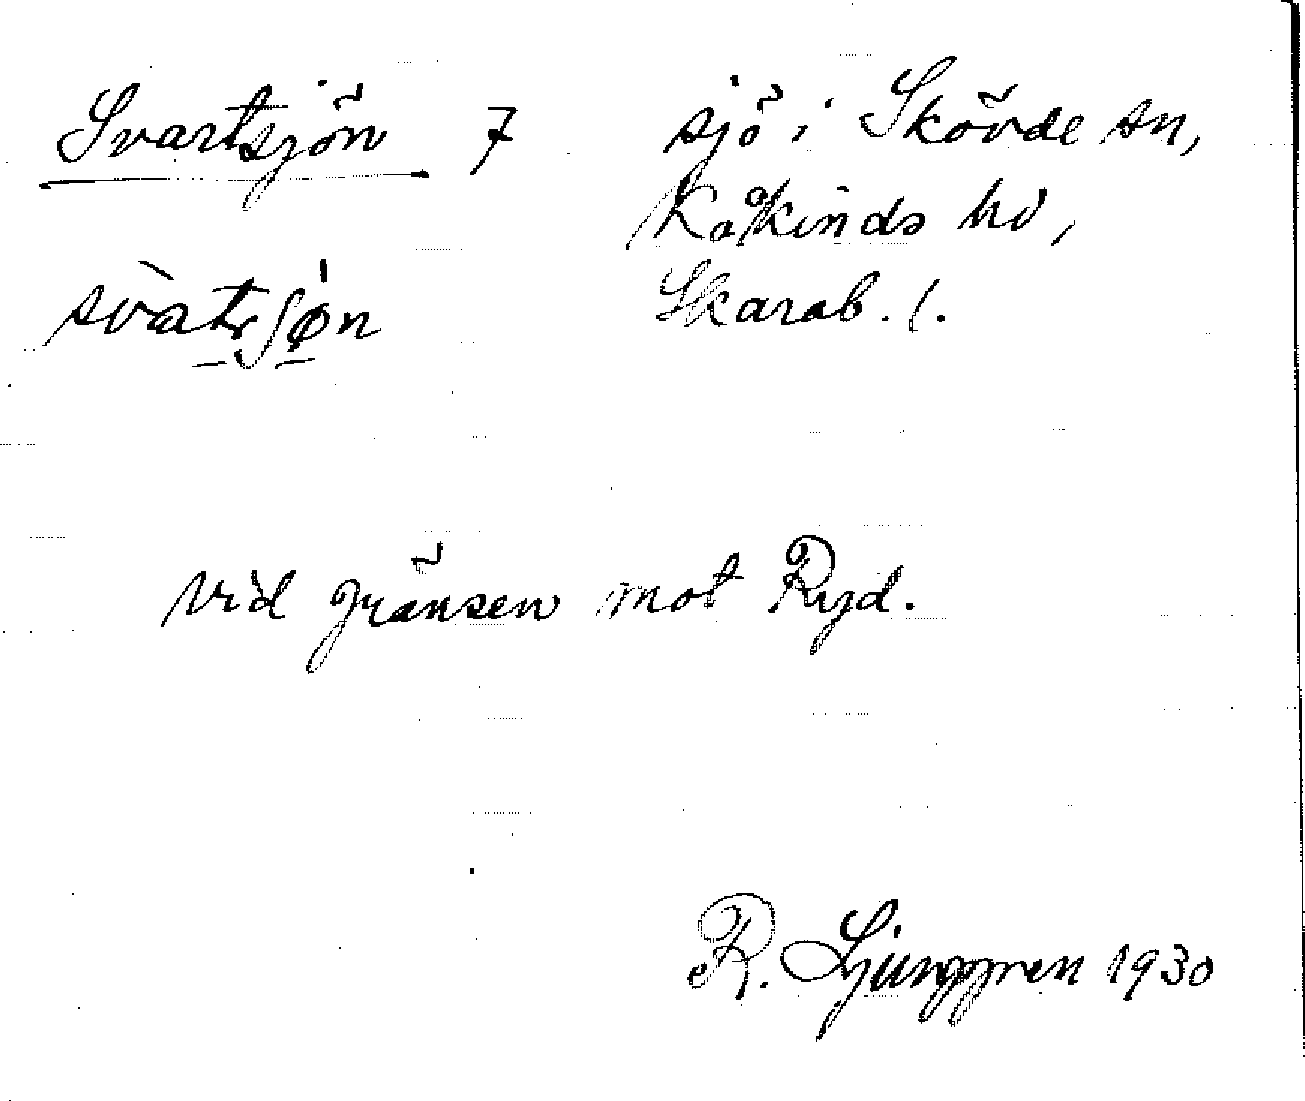 Svartsjön 7 sjö i Skövde sn,
Kåkinds hd,
svàtʂʃǿn Skarab. l.
vid gränsen mot Ryd.
R. Ljunggren 1930